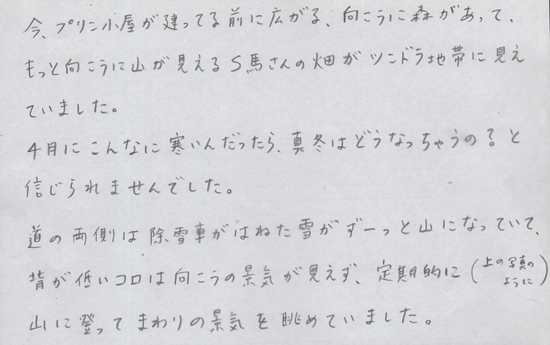 今、プリン小屋が建ってる前に広がる、向こうに森があって、
もっと向こうに山が見えるS馬さんの畑がツンドラ地帯に見え
ていました。
4月にこんなに寒いんだったら、真冬はどうなっちゃうの?と
信じられませんでした。
道の両側は除雪車がはねた雪がずーっと山になっていて、
背が低いコロは向こうの景気が見えず、定期的に(上の写真のように)
山に登ってまわりの景気を眺めていました。